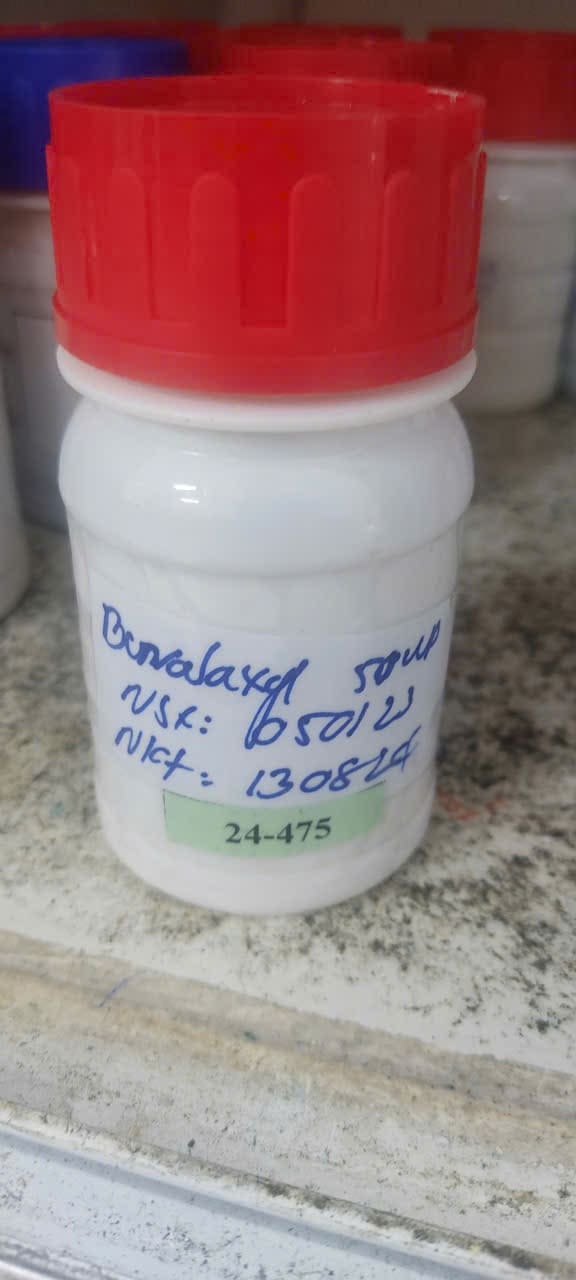 Benalaxyl 50WP
NSX: 050123
NKT: 130824
24-475